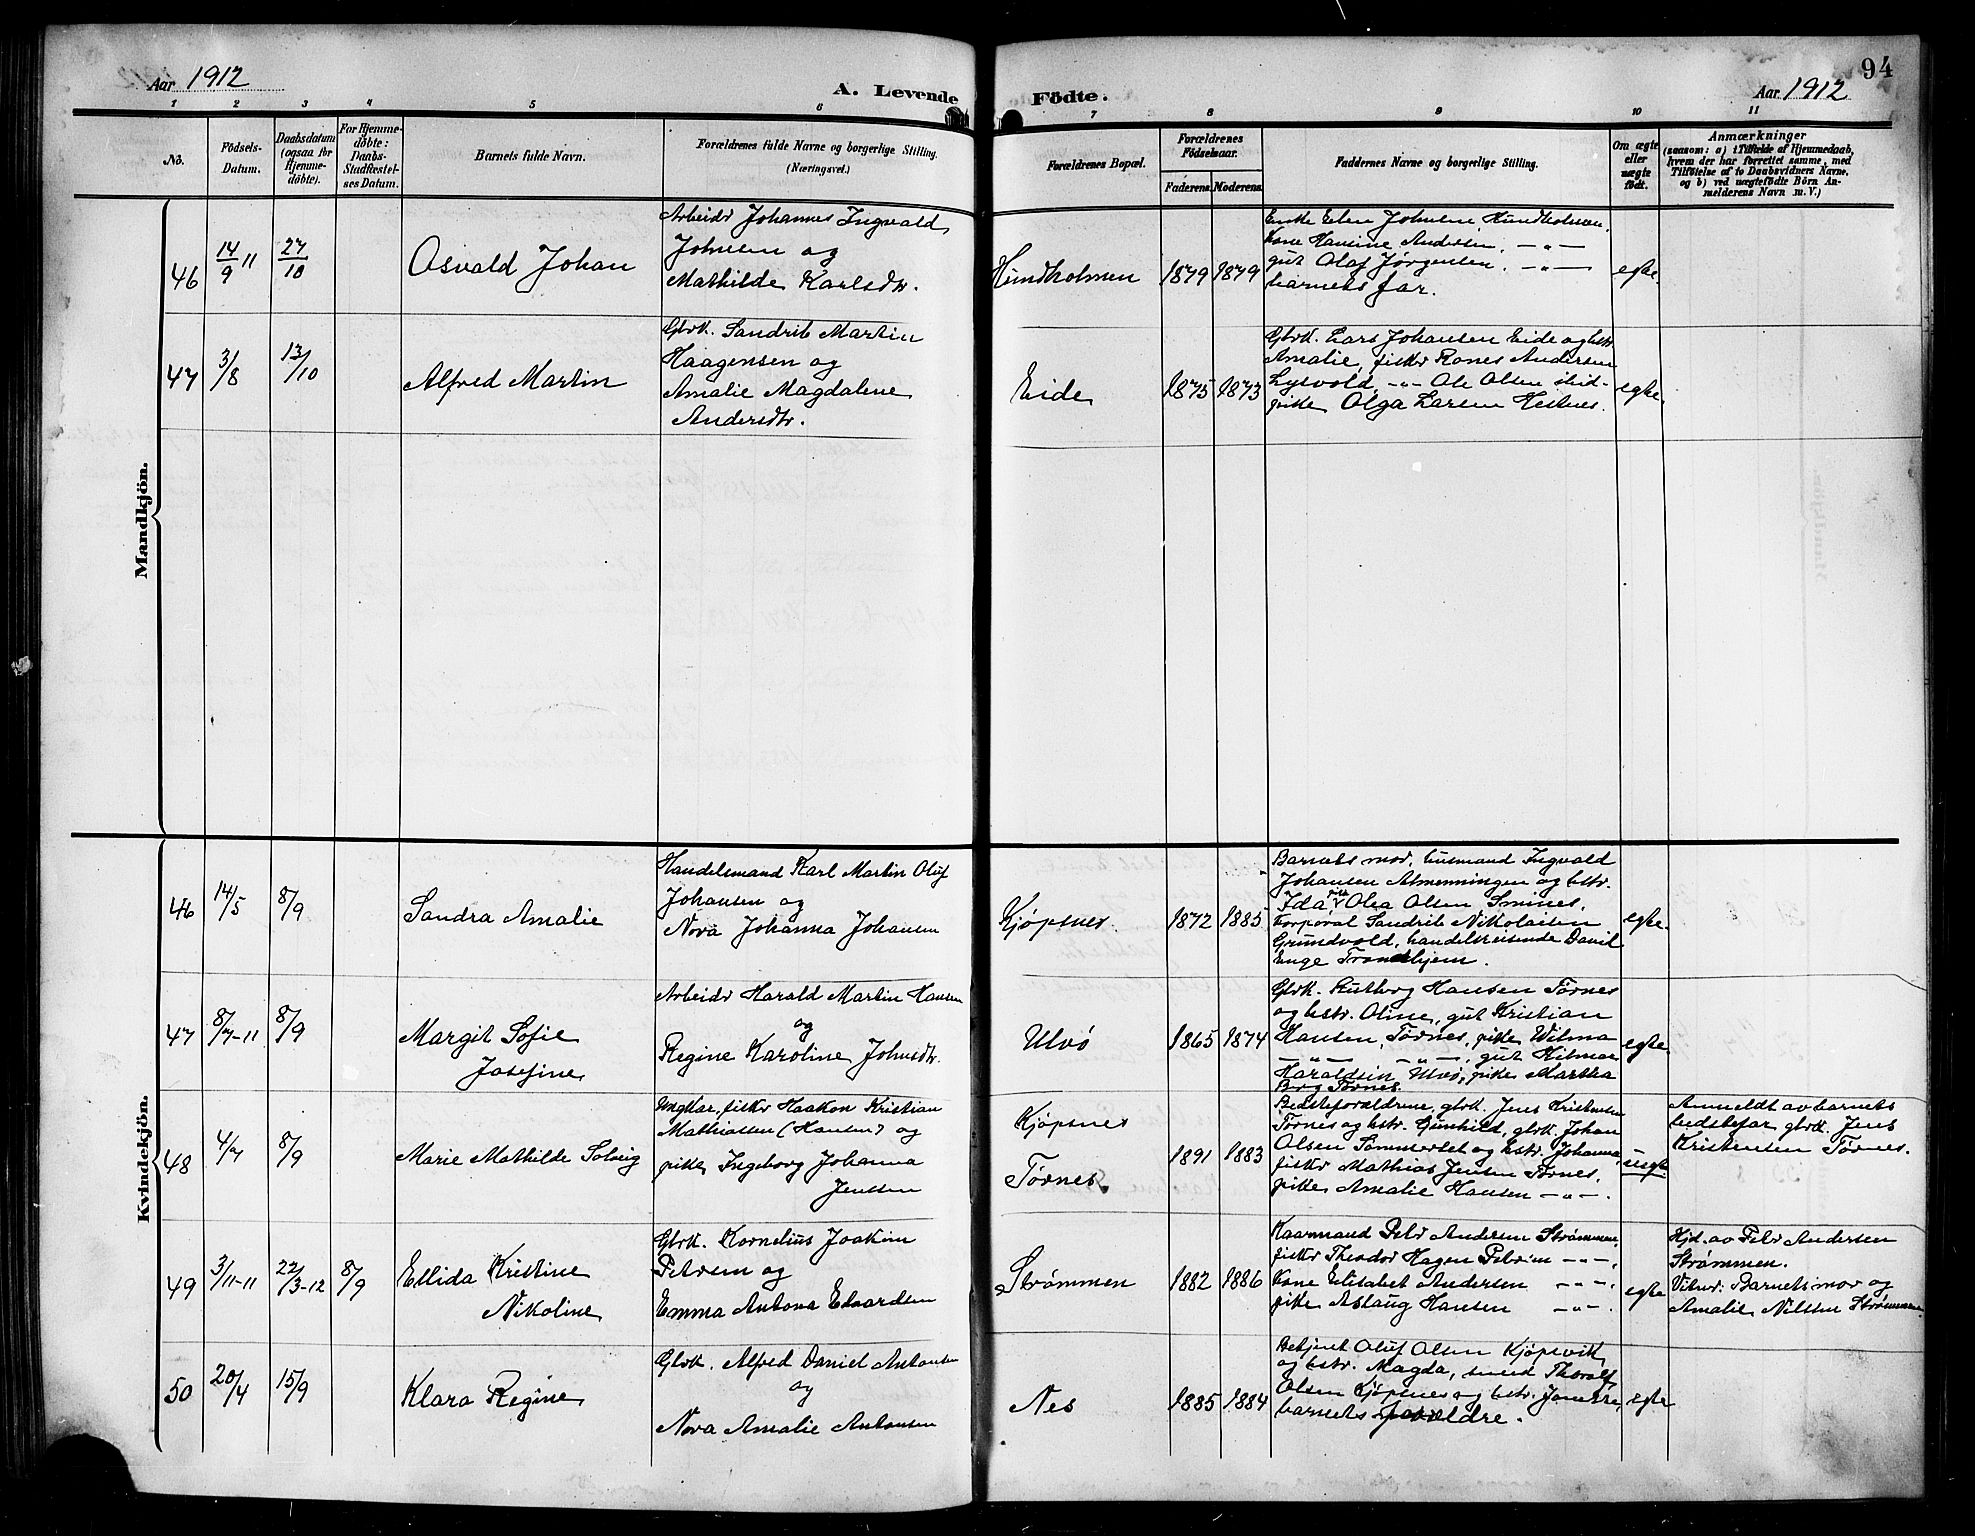 94
Aar 1912
A. Levende
Födte.
Aar 1912
1 2 3 4 5 6 7 8 9 10 11
No.
Födsels-
Datum.
Daabsdatum
(ogsaa for
Hjemme-
döbte).
For Hjemme-
döbte:
Daabs-
Stadfæstel-
ses Datum.
Barnets fulde Navn.
Forældrenes fulde Navne og borgerlige Stilling.
(Næringsvei.)
Forældrenes Bopæl.
Forældrenes
Födselsaar.
Faderens. Moderens.
Faddernes Navne og borgerlige Stilling.
Om ægte
eller
uægte
födt.
Anmærkninger
(saasom: a) i Tilfælde af Hjemmedaab,
hvem der har forrettet samme, med
Tilföielse af to Daabsvidners Navne,
og b) ved uægtefödte Börn An-
melderens Navn m. V.)
Mandkjön.
46
14/9 11
27/10
Osvald Johan
Arbeidr Johannes Ingvald
Johnsen og
Mathilde Karlsdtr.
Hundholmen
1879 1879
Enke Elen Johnsen Hundholmen.
Kone Hansine Andersen. — " —
gut Olaf Jørgensen. — " —
barnets far.
egte.
47
3/8
13/10
Alfred Martin
Gbrk. Sandrib Martin
Haagensen og
Amalie Magdalene
Andersdtr.
Eide
1875 1873
Gbrk. Lars Johansen Eide og hstr.
Amalie, fiskr Rones Andersen
Lysvold, - " - Ole Olsen ibid -
pike Olga Larsen Hestnes.
egte.
Kvindekjön.
46
14/5
8/9
Sandra Amalie
Handelsmand Karl Martin Oluf
Johansen og
Nora Johanna Johansen
Kjøpsnes.
1872 1885
Barnets mor, husmand Ingvald
Johansen Almenningen og hstr.
Ida, pike Olea Olsen Smines.
Korporal Sandrib Nikolaisen
Grundvold, handelsreisende David
Enge Trondhjem.
egte.
47
8/7-11
8/9
Margit Sofie
Josefine
Arbeidr Harald Martin Hansen
og
Regine Karoline Johnsdtr.
Ulvö
1865 1874
Gbrk. Hansen Tørnes
og hstr. Oline, gut Kristian
Hansen, Tørnes, pike Wilma
— " — — " —, gut Hilmar
Haraldsen, Ulvö, pike Martha
Borg Tørnes.
egte.
48
4/7
8/9
Marie Mathilde Solveig
Ungkar, fiskr Haakon Kristian
Mathiassen (Hansen) og
pike Ingeborg Johanna
Jenssen
Kjøpsnes
Tørnes.
1891 1883
Bedsteforældrene, gbrk. Jens Kristensen
Tørnes og hstr. Gunhild, gbrk. Johan
Olsen Sommerset og hstr. Johanna,
fiskr Mathias Jensen Tørnes.
pike Amalie Hansen — " —.
uegte
Anmeldt av barnets
bedstefar gbrk. Jens
Kristensen Tørnes.
49
3/11-11
22/3-12
8/9
Ellida Kristine
Nikoline
Gbrk. Kornelius Joakim
Petersen og
Emma Antona Edvardsen
Strømmen
1882 1886
Kaarmand Petr Andersen Strømmen,
fiskr Theodor Hagen Petersen — " —,
Kone Elisabet Andersen — " —,
pike Aslaug Hansen — " —.
egte
Hjd. av Petr Andersen
Strømmen.
Vitner: Barnets mor og
Amalie Nilsen Strømmen
50
20/4
15/9
Klara Regine
Gbrk. Alfred Daniel Antonsen
og
Nora Amalie Antonsen
Nes
1885 1884
Betjent Oluf Olsen Kjøpsvik
og hstr. Magda, smed Thoralf
Olsen Kjøpsnes og hstr. Janette,
barnets forældre.
egte